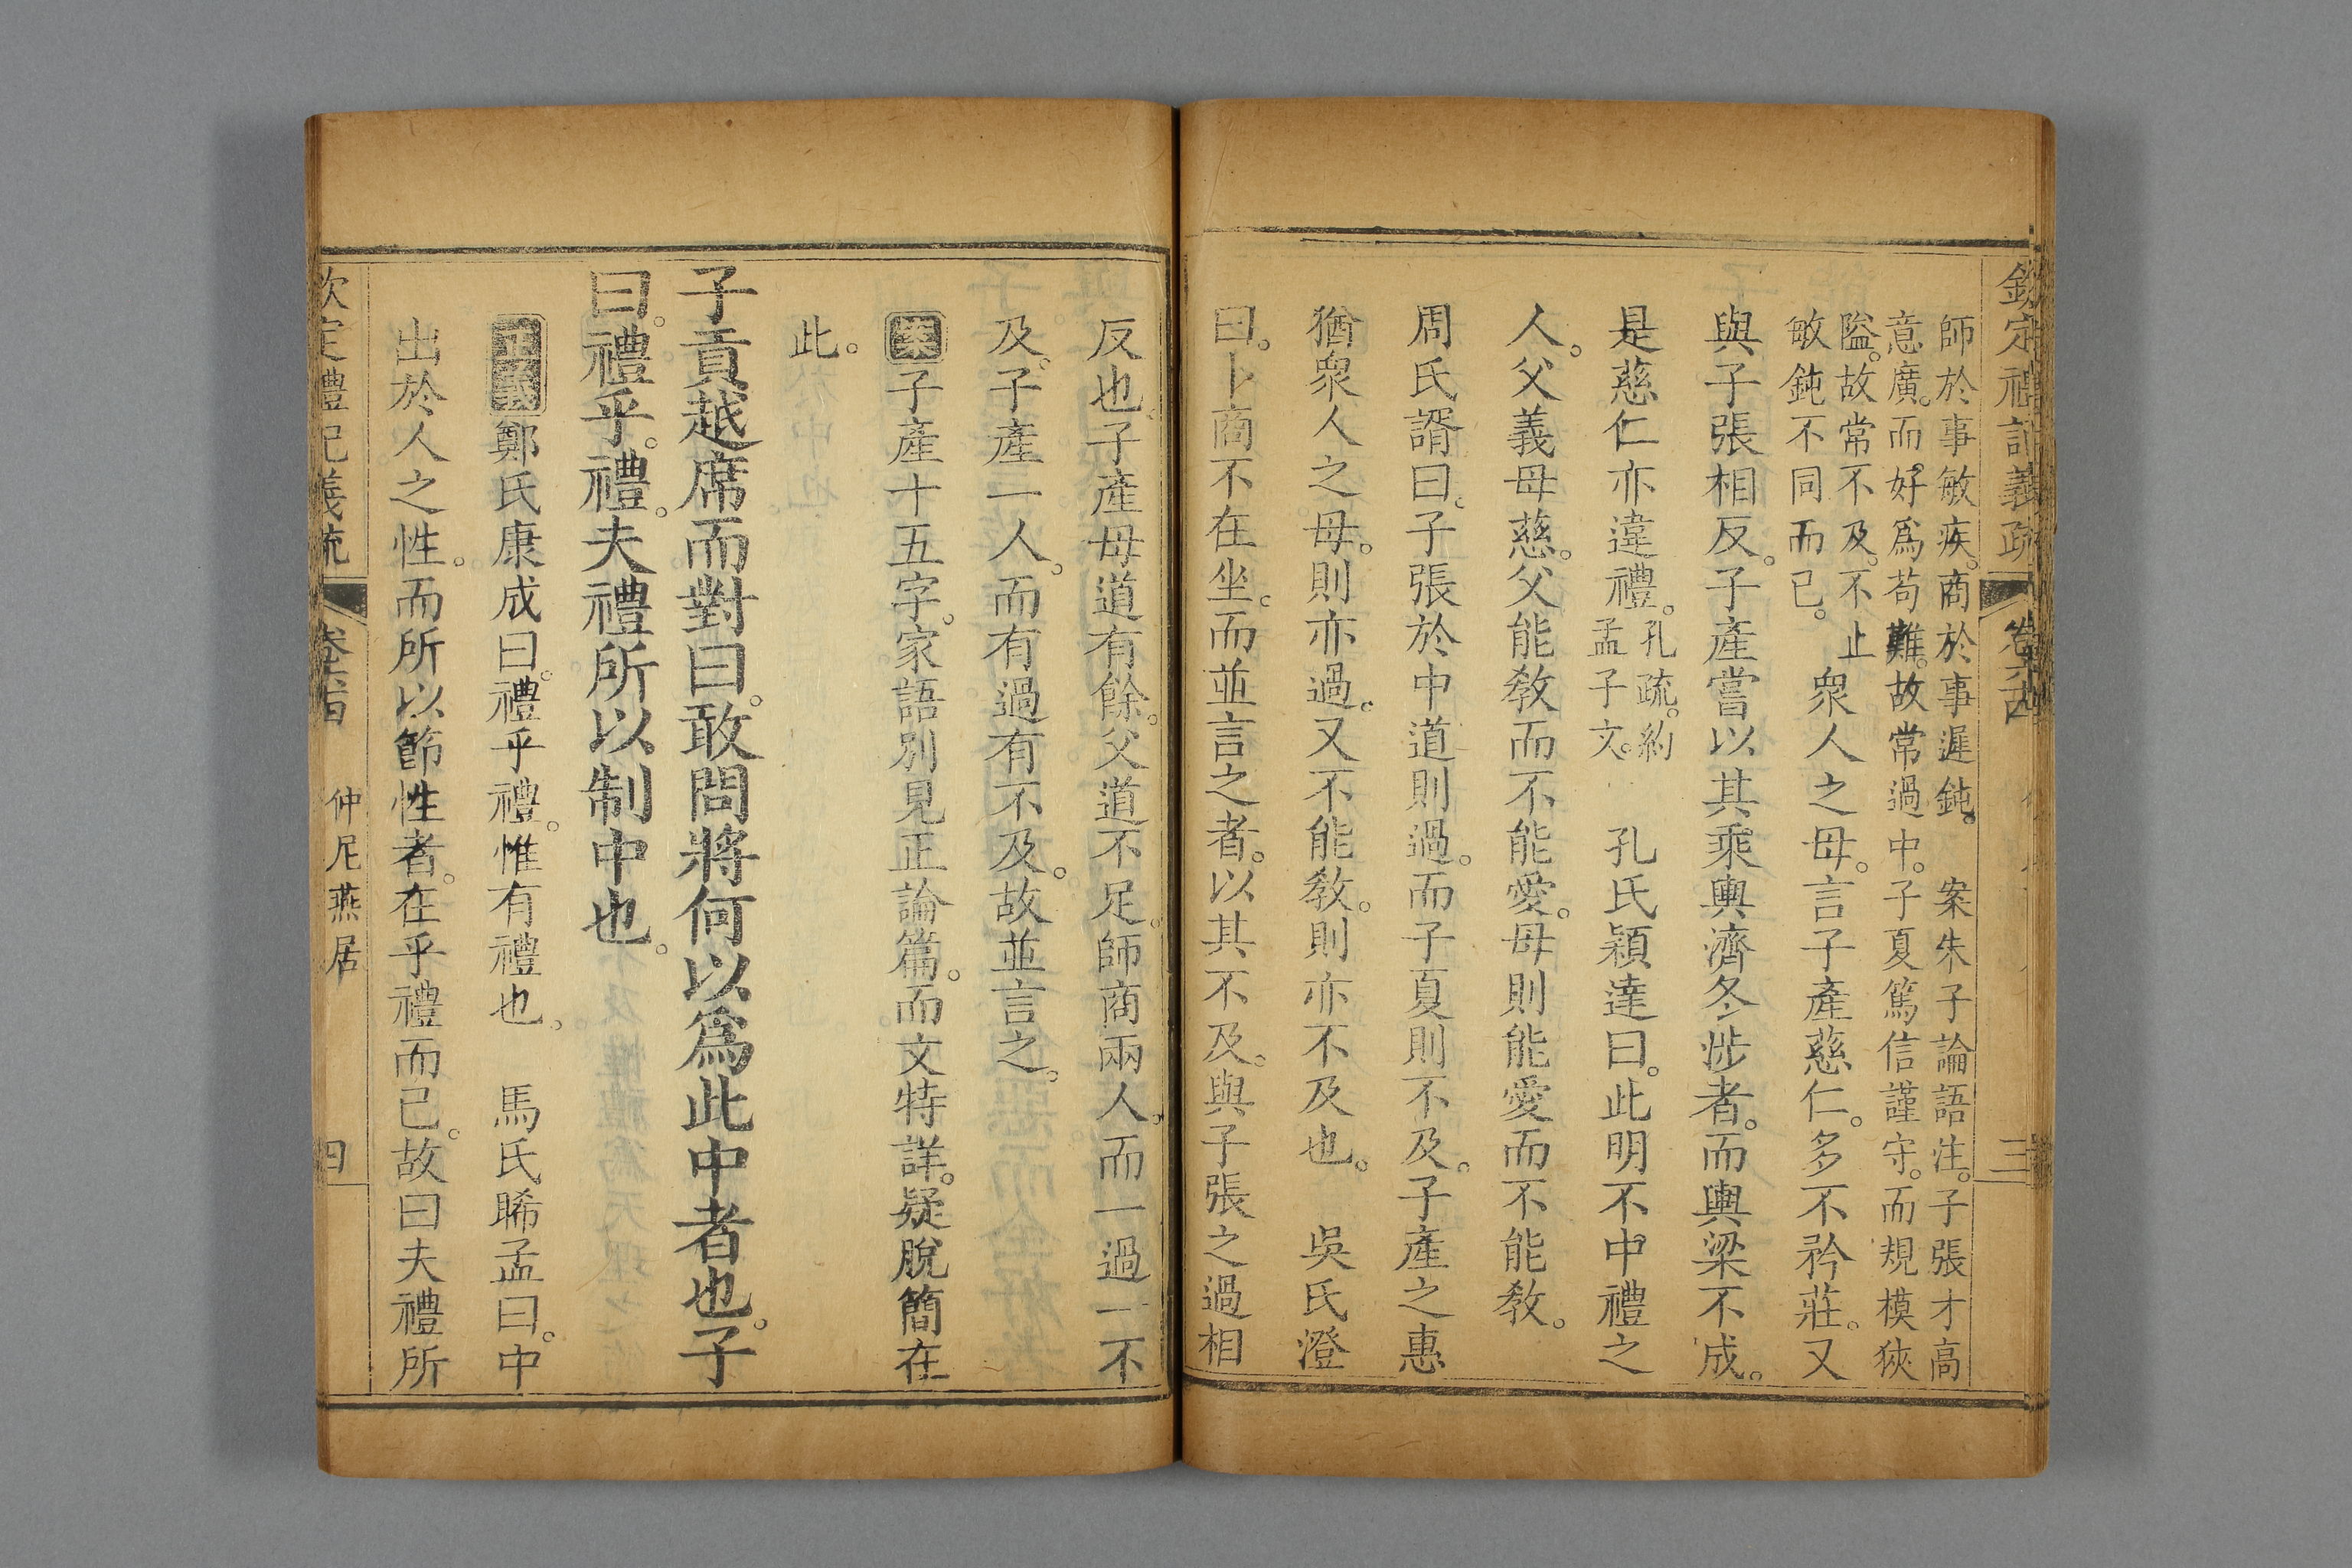 欽定禮記義疏 卷六十四 三
師於事敏疾。商於事遲鈍。 案朱子論語注。子張才高
意廣。而好爲苟難。故常過中。子夏篤信謹守。而規模狹
隘。故常不及。不止
敏鈍不同而已。
衆人之母。言子產慈仁。多不矜莊。又
與子張相反。子產嘗以其乘輿濟冬涉者。而輿梁不成。
是慈仁亦違禮。
孔疏。約
孟子文。
孔氏穎達曰。此明不中禮之
人。父義母慈。父能教而不能愛。母則能愛而不能教。
周氏諝曰。子張於中道則過。而子夏則不及。子產之惠
猶衆人之母。則亦過。又不能教。則亦不及也。 吳氏澄
曰。卜商不在坐。而並言之者。以其不及。與子張之過相
反也。子產母道有餘。父道不足。師商兩人。而一過一不
及。子產一人。而有過有不及。故並言之。
案子產十五字。家語別見正論篇。而文特詳。疑脫簡在
此。
子貢越席而對曰。敢問將何以爲此中者也。子
曰。禮乎。禮。夫禮所以制中也。
正義鄭氏康成曰。禮乎禮。惟有禮也。 馬氏睎孟曰。中
出於人之性。而所以節性者。在乎禮而已。故曰夫禮所
欽定禮記義疏 仲尼燕居 四